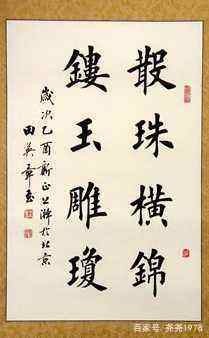 散珠橫錦
鏤玉雕瓊
歲次乙酉新正上澣於北京
田英章書
百家号/尧尧1978